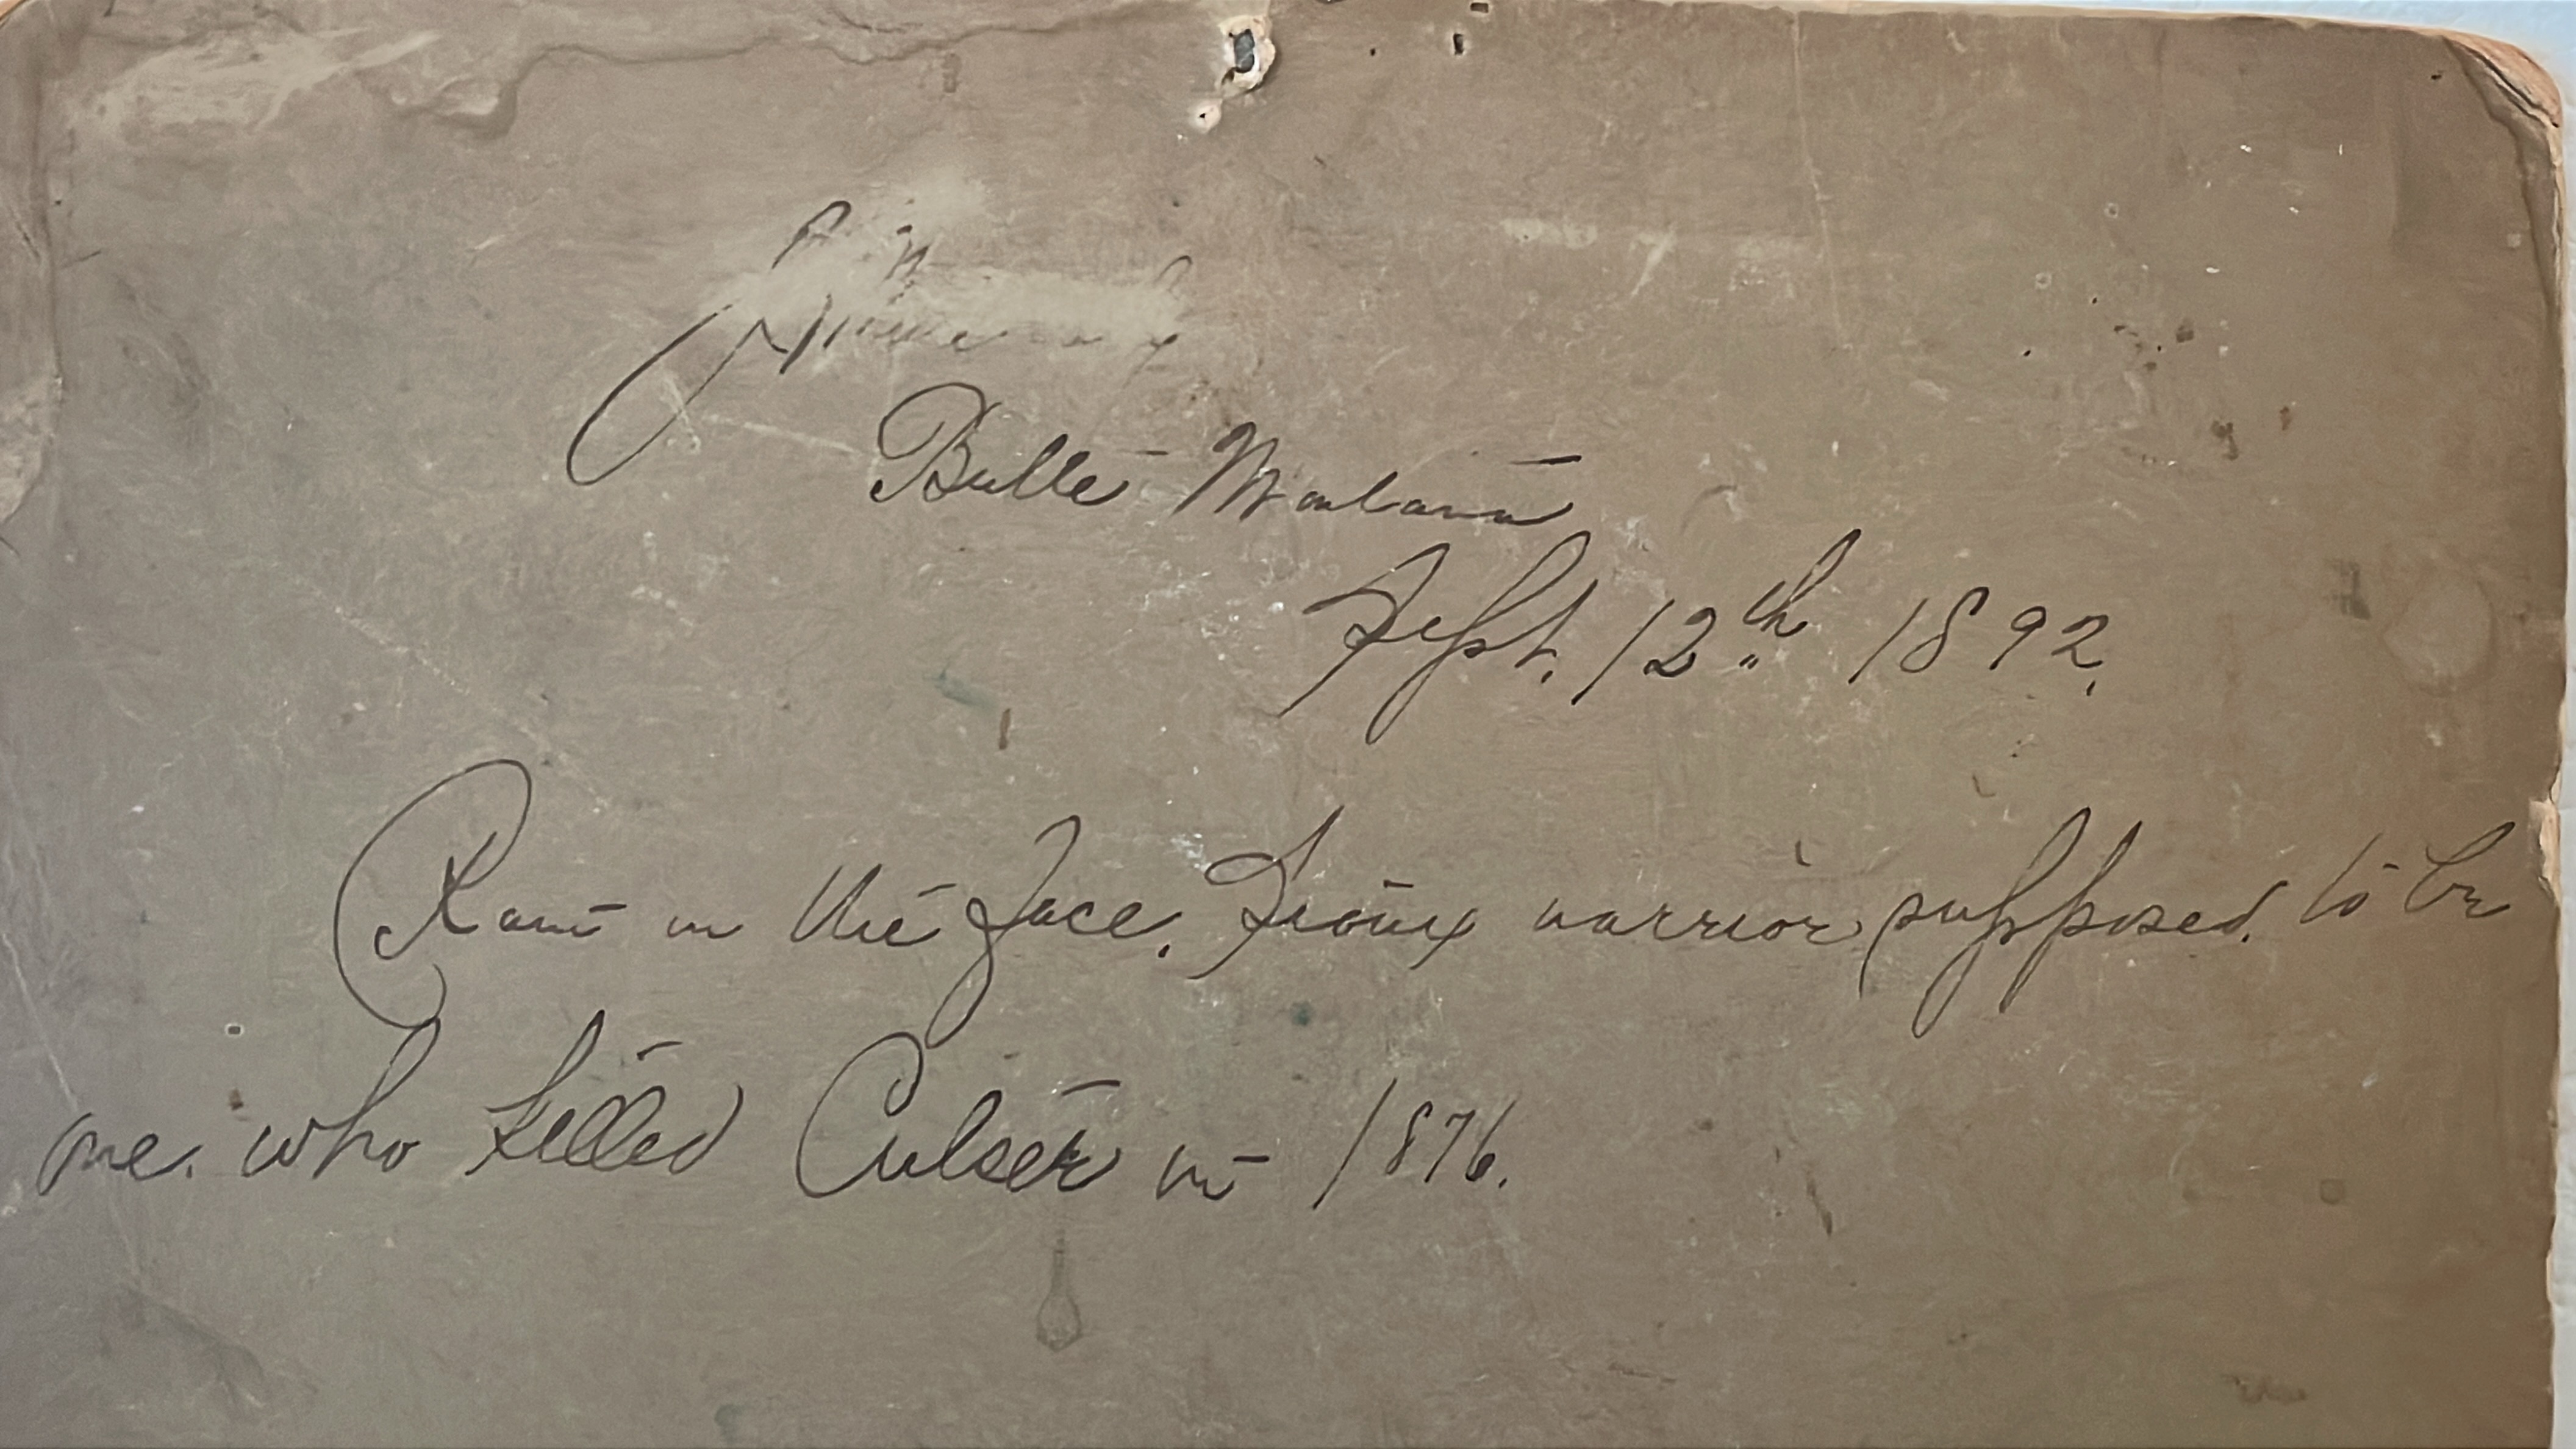 Butte Montana
Sept. 12th 1892.
Rain in the Face. Sioux warrior supposed to be
one. who killed Custer in 1876.